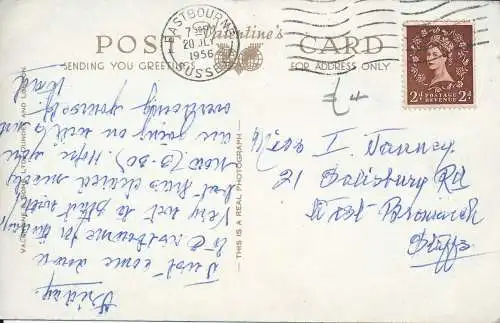 POST CARD
Valentine's
SENDING YOU GREETINGS
FOR ADDRESS ONLY
EASTBOURNE
SUSSEX
7 30PM
20 JLY
1956
POSTAGE
REVENUE
2D 2D
VALENTINE & SONS LTD. DUNDEE AND LONDON
THIS IS A REAL PHOTOGRAPH
Friday.
Just come down
to Eastbourne for today.
Very wet to start with
but has cleared nicely
now (3-30). Hope you
are going on well & are
everlooking yourself.
Miss I. Tranney
21 Salisbury Rd
West Bromwich
Staffs